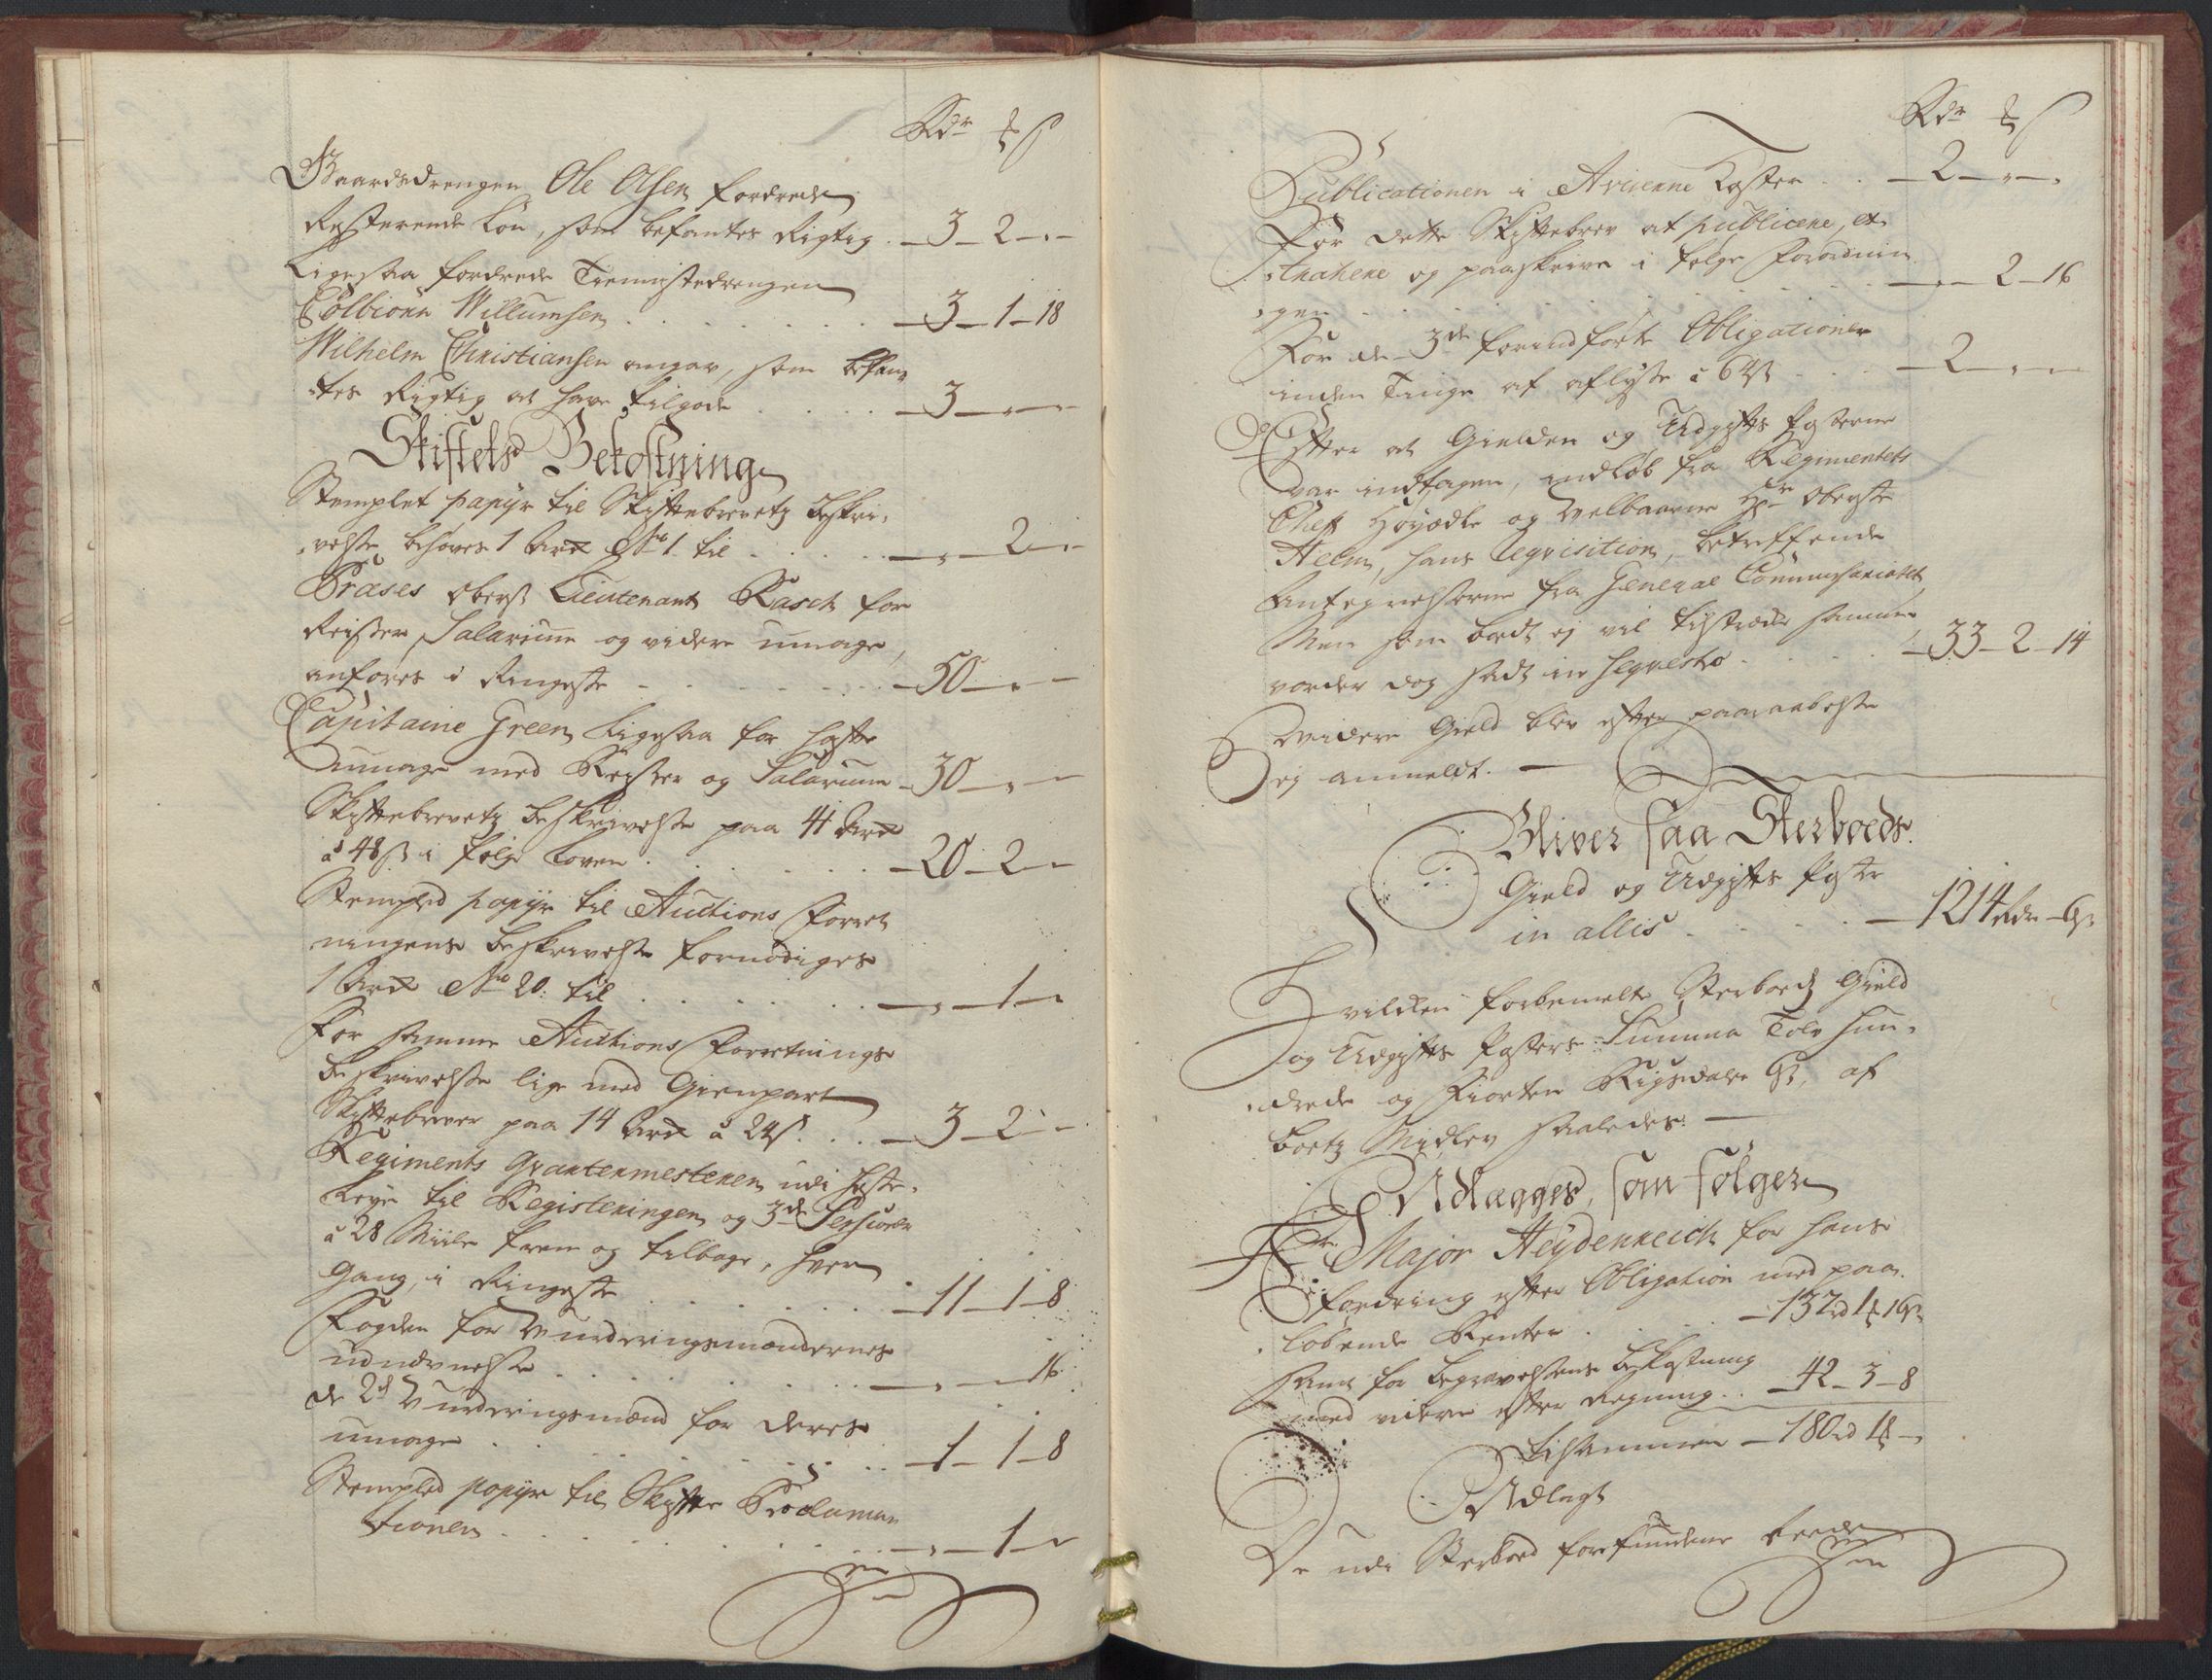 Rdr ꝥ ß
Gaardsdrengen Ole Olsen fordrede
Resterende Løn, som befantes Rigtig . 3 - 2 - -
Ligesaa fordrede Tiennistedrengen
Colbiønn Willumsen . . . . . . . 3 - 1 - 18
Wilhelm Christiansen angav, som befan-
tes Rigtig at have tilgode . . . . 3 - -
Skiftets Bekostning
Stemplet papiir til Skiftebrevetz Beskri-
velse behøves 1 Ark No 1 til . . . . - 2 -
Præses Oberst Lieutenant Rasch for
Reiser, Salarium og videre umage,
anføres i Ringeste . . . . . . 50 - -
Capitaine Green ligesaa for hafte
umage med Reiser og Salarium - 30 - -
Skiftebrevetz Beskrivelse paa 41 Ark
a 48 ß i følge Loven . . . . . . 20 - 2 -
Stempled papiir til Auctions Forret
ningens Beskrivelse fornødiges
1 Ark No 20. til . . . . . . . - 1 -
For samme Auctions Forretnings
Beskrivelse lige med Gienpart
Skiftebrever paa 14 Ark a 24 ß . . . 3 - 2 -
Regiments Qvartermesteren udi heste-
leye til Registeringen og 3de Sessioner
a 28 Miile frem og tilbage, hver
Gang, i Ringeste . . . . . . . 11 - 1 - 8
Fogden for Vurderingsmændernes
udnævnelse . . . . . . . . - - 16
de 2de Vurderingsmænd for deres
umage . . . . . . . . . 1 - 1 - 8
Stempled papiir til Skifte Proclama-
tionen . . . . . . . . . - 1 -
Rdr ꝥ ß
Publicationen i Aviserne koster . . 2 - -
For dette Skiftebrev at publicere, ex-
trahere og paaskrive i følge Forordnin
gen . . . . . . . . . - 2 - 16
For de 3de forindførte Obligationer
inden Tinge at aflyse a 64 ß . . . 2 - -
Efter at Gielden og Udgifts Posterne
var indtagen, indløb fra Regimentets
Cheff Høyædle og Velbaarne Hr Oberste
Helm, hans Reqvisition, betreffende
Antegnelserne fra General Commissariatet,
Men som boet ej vil tilstræde samme,
vorder dog sadt in seqvestro . . . . . 33 - 2 - 14
Videre Gield blev efter paaraabelse
ej anmeldt. —
Bliver saa Sterboeds
Gield og Udgifts Poster
in allis . . . . . 1214 Rdr - 6 ß
Hvilken forbemelte Sterboeds Gield
og Udgifts Posters Summa Tolv hun-
drede og Fiorten Rigsdaler 6 ß, af
Boetz Midler saaledes: —
Udlægges, som følger
Hr Major Heydenreich for hans
fordring efter Obligation med paa-
løbende Renter . . . . 137 rd 1 ꝥ 16 ß
Hans for Begravelsens Bekostning
med videre efter Regning . . 42 - 3 - 8
tilsammen - 180 rd 1 ꝥ -
Udlagt
De udi Sterboed forefundene